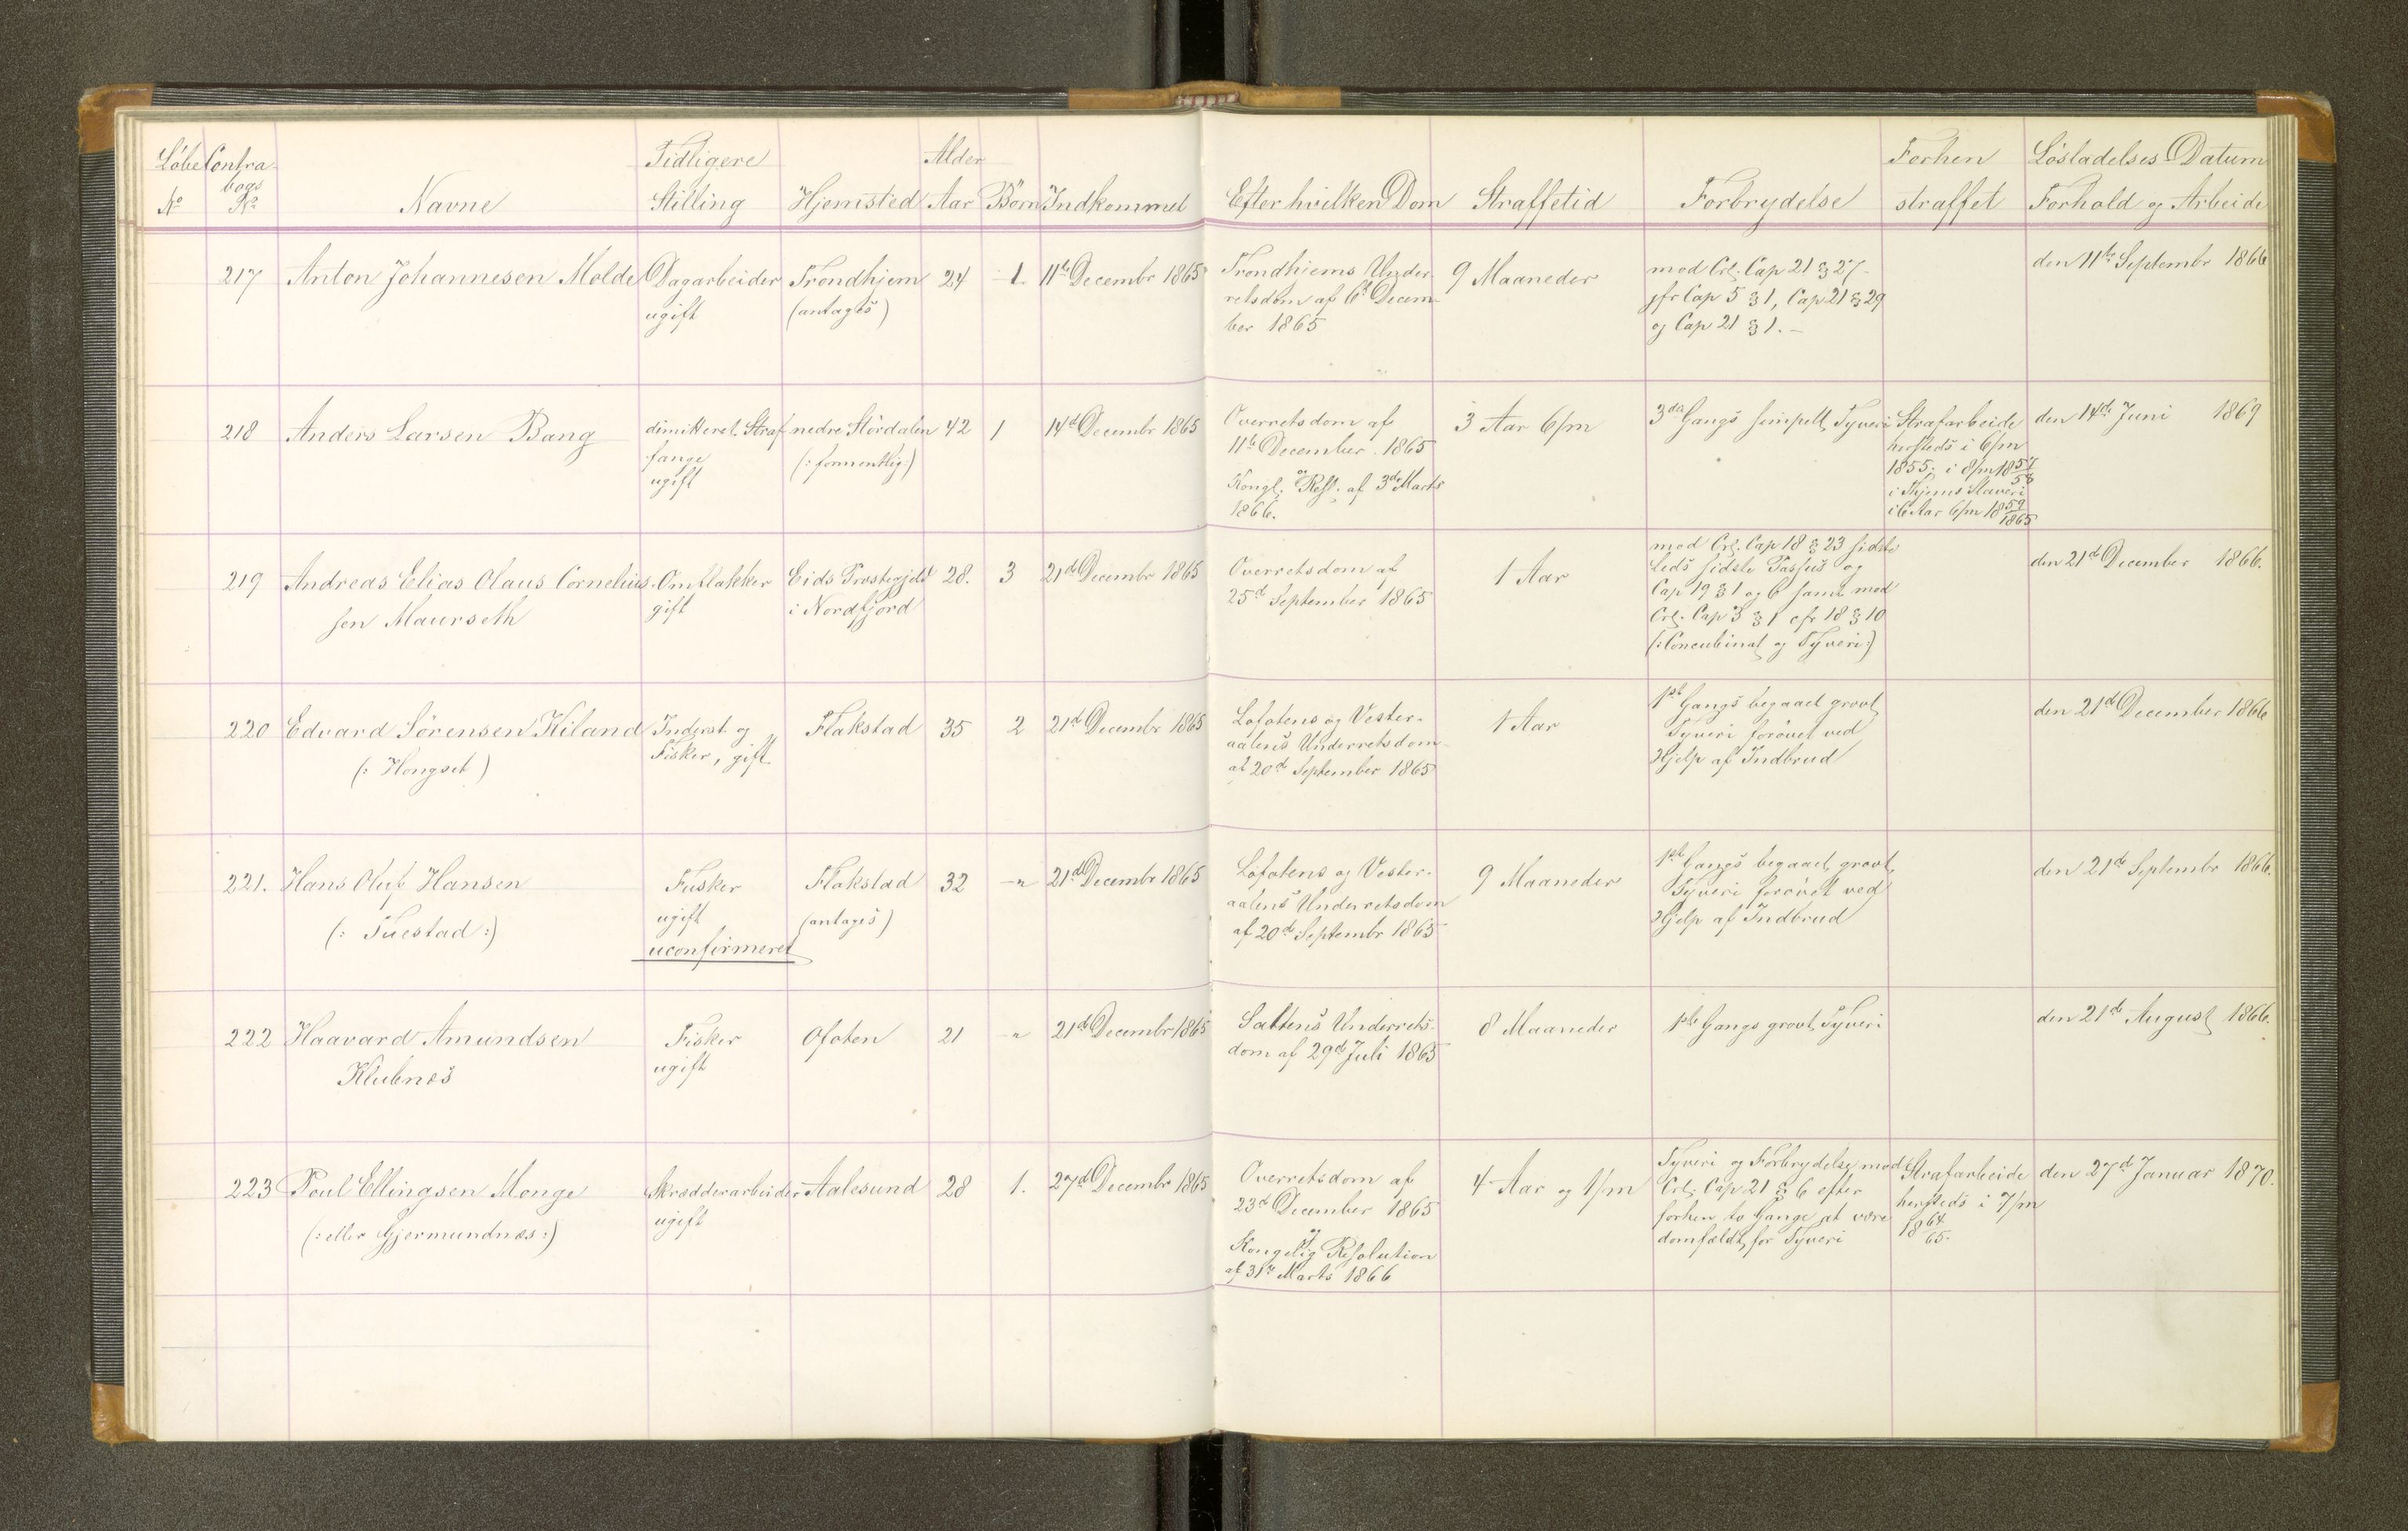 Løbe Contra- Tidligere Alder Forhen Løsladelses Datum
bogs
No No Navne Stilling Hjemsted Aar Børn Indkommet Efter hvilken Dom Straffetid Forbrydelse straffet Forhold og Arbeide
217 Anton Johannesen Molde Dagarbeider Trondhjem 24 1. 11te Decembr 1865 Trondhiems Under- 9 Maaneder mod Crl. Cap 21 § 27- den 11te Septembr 1866
ugift (antages) retsdom af 6t Decem- jfr Cap 5 § 1, Cap 21 § 29
ber 1865 og Cap 21 § 1.-
218 Anders Larsen Bang dimitteret Straf- nedre Stördalen 42 1 14d Decembr 1865 Overretsdom af 3 Aar 6/m 3die Gangs simpelt Tyveri Strafarbeide den 14de Juni 1869
fange (: formentlig:) 11te December 1865 hersteds i 6/m
ugift og 1855; i 8/m 1857/58
Kongl. Resl. af 3die Marts i Thjems Slaveri
1866. i 6 Aar 6/m 1859/1865
219 Andreas Elias Olaus Cornelius- Omflakker Eids Præstegjeld 28. 3 21d Decembr 1865 Overretsdom af 1 Aar mod Crl. Cap 18 § 23 sidste den 21d December 1866.
sen Maurseth gift i Nordfjord 25d September 1865 Leds sidste Passus og
Cap 19 § 1 og 6 samt mod
Crl. Cap 3 § 1 cfr 18 § 10
(: Concubinat og Tyveri:)
220 Edvard Sörensen Kiland Inderst og Flakstad 35 2 21d Decembr 1865 Lofotens og Vester- 1 Aar 1ste Gangs begaaet grovt den 21d December 1866
(: Hongset ) Fisker, gift aalens Underretsdom Tyveri forövet ved
af 20d September 1865 Hjelp af Indbrud
221. Hans Oluf Hansen Fisker Flakstad 32 -" 21d Decembr 1865 Lofotens og Vester- 9 Maaneder 1ste Gangs begaaet grovt den 21de Septembr 1866.
(: Tuestad :) ugift (antages) aalens Underretsdom Tyveri forövet ved
uconfirmeret af 20d Septembr 1865 Hjelp af Indbrud
222 Haavard Amundsen Fisker Ofoten 21 -" 21de Decembr 1865 Saltens Underrets- 8 Maaneder 1ste Gangs grovt Tyveri den 21de August 1866.
Klubnæs ugift dom af 29d Juli 1865
223 Poul Ellingsen Monge Skrædderarbeider Aalesund 28 1. 27d Decembr 1865 Overretsdom af 4 Aar og 1/m Tyveri og Forbrydelse mod Strafarbeide den 27d Januar 1870.
(: eller Gjermundnæs:) ugift 23d December 1865 Crl. Cap 21 § 6 efter hersteds i 7/m
og forhen to Gange at være 1864/65.
Kongelig Resolution domfældt for Tyveri
af 31te Marts 1866